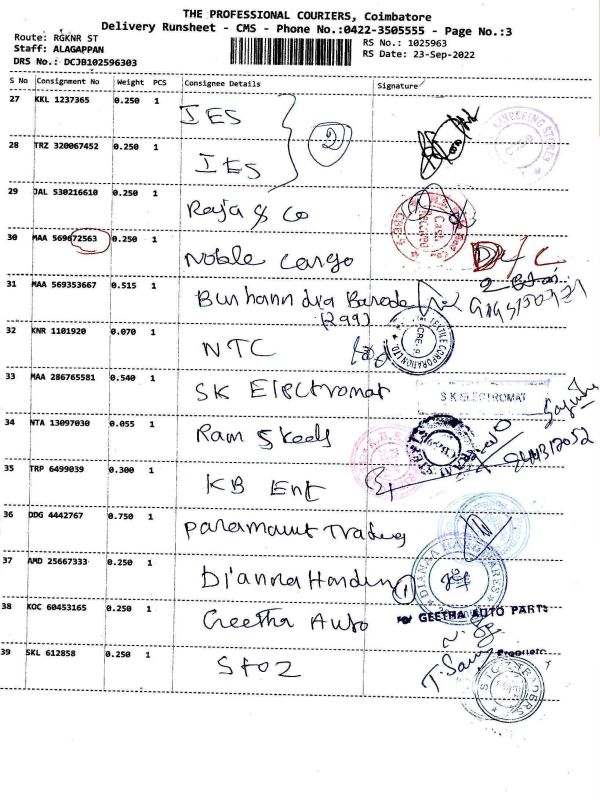 THE PROFESSIONAL COURIERS, Coimbatore
Delivery Runsheet - CMS - Phone No.:0422-3505555 - Page No.:3
Route: RGKNR ST
RS No.: 1025963
Staff: ALAGAPPAN
RS Date: 23-Sep-2022
DRS No.: DCJB102596303
S No Consignment No Weight PCS Consignee Details Signature
27 KKL 1237365 0.250 1 IES
2
28 TRZ 320067452 0.250 1 IES
29 JAL 530216610 0.250 1 Raja & Co
30 MAA 569672563 0.250 1 Noble Cargo
D/C
31 MAA 569353667 0.515 1
(299)
32 KNR 1101920 0.070 1 NTC
33 MAA 286765581 0.540 1 SK Electromat
S K ELECTROMAT
34 NTA 13097030 0.055 1 Ram Steels
35 TRP 6499039 0.300 1 KB Ent
36 DDG 4442767 0.750 1 Paramount
37 AMD 25667333 0.250 1 Dianna
1
38 KOC 60453165 0.250 1 Geetha Auto
GEETHA AUTO PARTS
39 SKL 612858 0.250 1